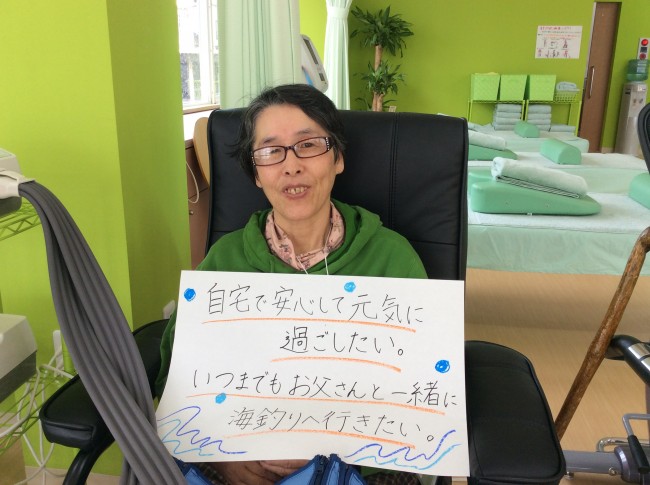 自宅で安心して元気に
過ごしたい。
いつまでもお父さんと一緒に
海釣りへ行きたい。